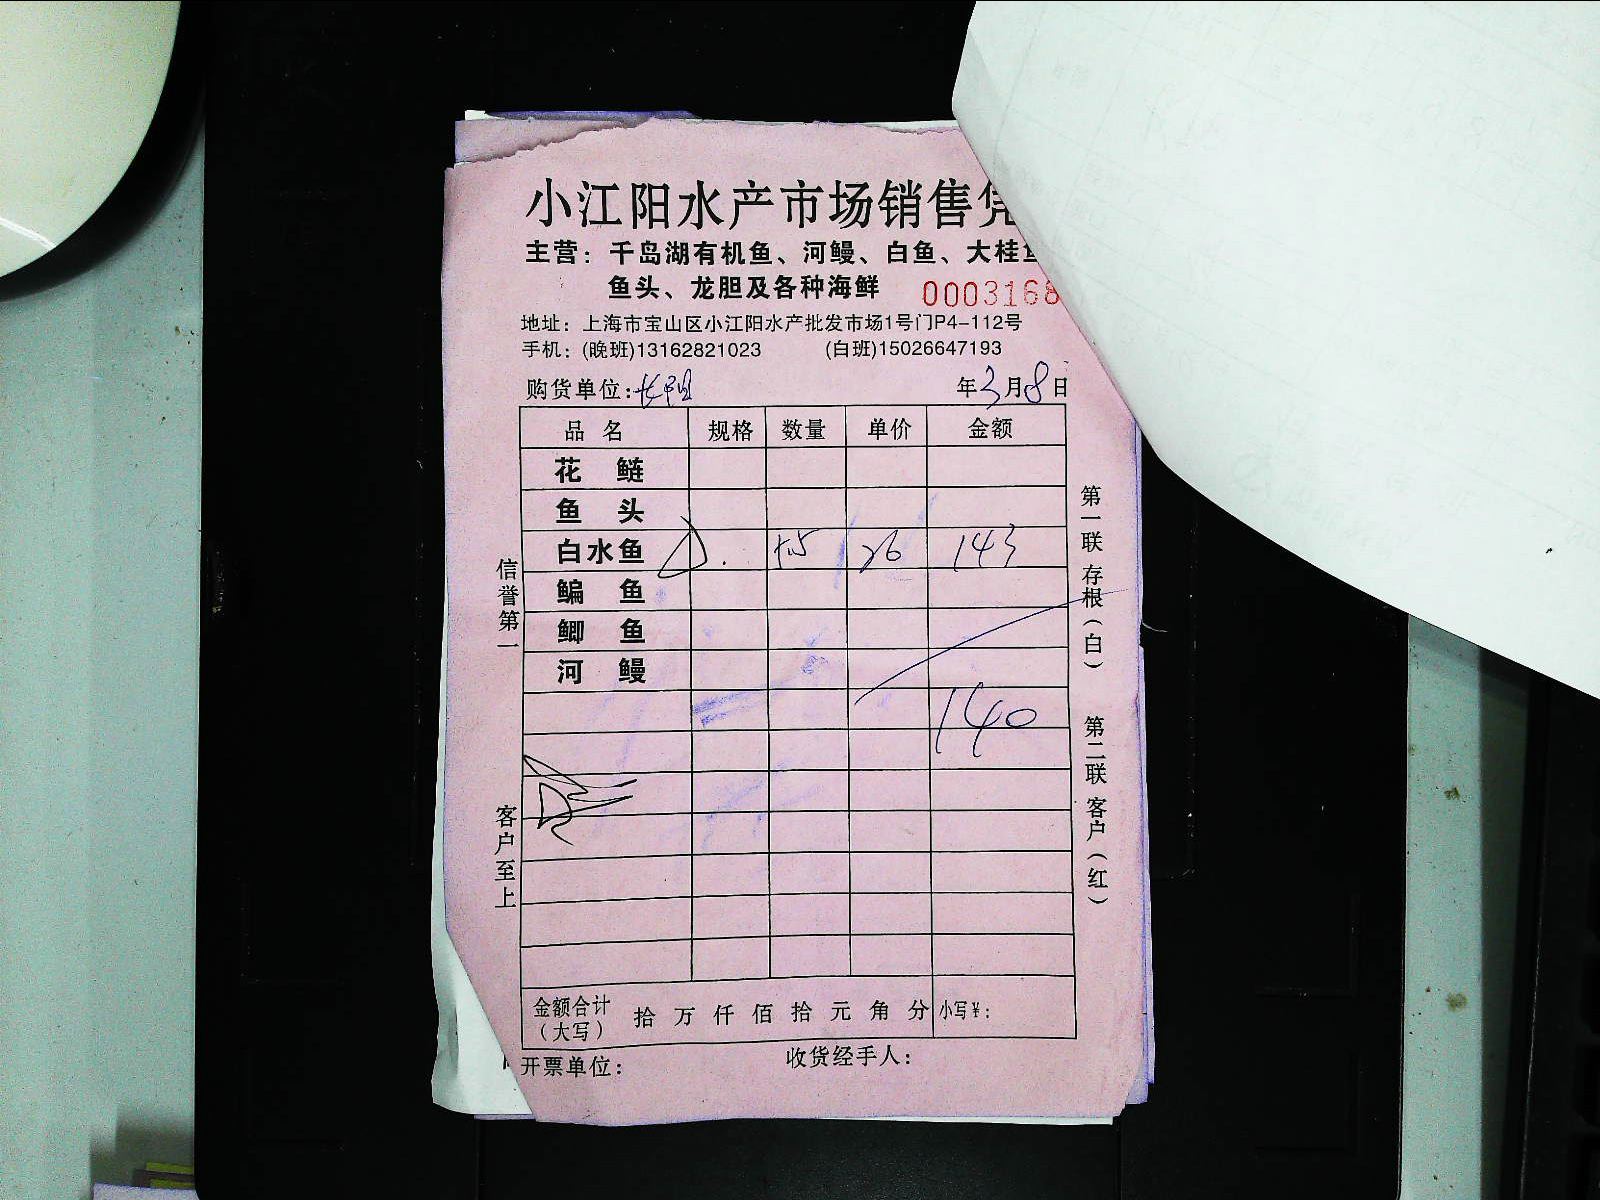 小江阳水产市场销售凭
主营：千岛湖有机鱼、河鳗、白鱼、大桂鱼
鱼头、龙胆及各种海鲜 0003168
地址：上海市宝山区小江阳水产批发市场1号门P4-112号
手机：(晚班)13162821023 (白班)15026647193
购货单位： 年3月8日
品名 规格 数量 单价 金额
花鲢
鱼头
白水鱼 26 143
鳊鱼
鲫鱼
河鳗
140
金额合计（大写） 拾万仟佰拾元角分 小写¥：
开票单位： 收货经手人：
信誉第一
客户至上
第一联 存根（白）
第二联 客户（红）